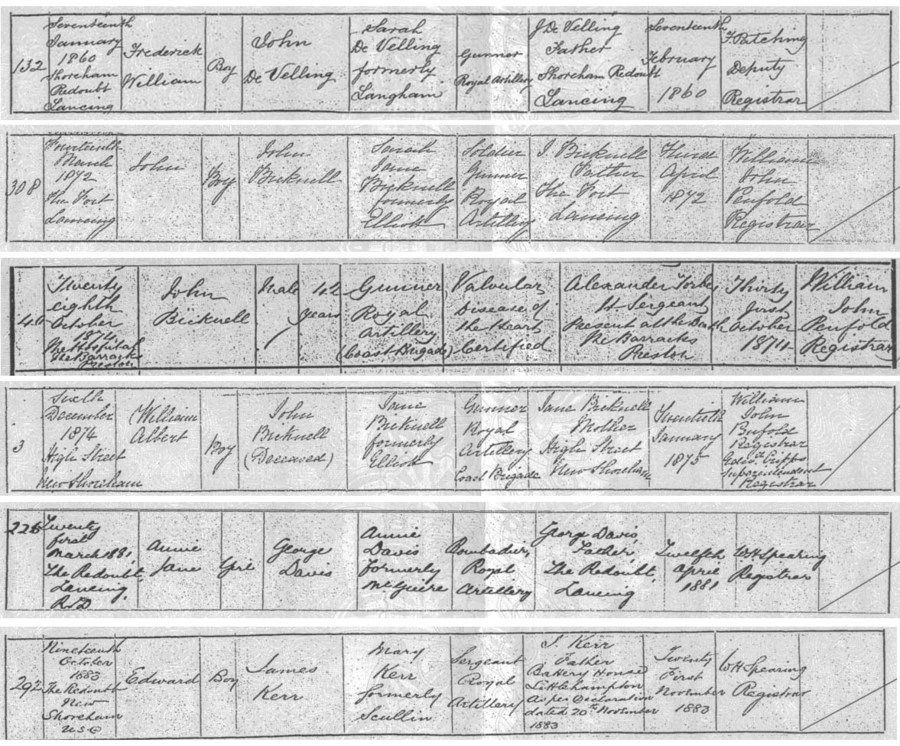 132
Seventeenth
January
1860
Shoreham
Redoubt
Lancing
Frederick
William
Boy
John
De Velling
Sarah
De Velling
formerly
Langham
Gunner
Royal Artillery
J. De Velling
Father
Shoreham Redoubt
Lancing
Seventeenth
February
1860
F Patching
Deputy
Registrar
308
Fourteenth
March
1872
The Fort
Lancing
John
Boy
John
Bicknell
Jane
Bicknell
formerly
Elliott
Soldier
Gunner
Royal
Artillery
J. Bicknell
Father
The Fort
Lancing
Third
April
1872
William
John
Penfold
Registrar
Twenty
eighth
October
1874
The Hospital
The Barracks
Preston
John
Bicknell
Male
42
years
Gunner
Royal
Artillery
(Coast Brigade)
Valvular
Disease of
the Heart
Certified
Alexander
Sergeant
Present at the Death
The Barracks
Preston
Thirty
first
October
1874
William
John
Penfold
Registrar
3
Sixth
December
1874
High Street
New Shoreham
William
Albert
Boy
John
Bicknell
(Deceased)
Jane
Bicknell
formerly
Elliott
Gunner
Royal
Artillery
Coast Brigade
Jane Bicknell
Mother
High Street
New Shoreham
Twentieth
January
1875
William
John
Penfold
Registrar
Superintendent
Registrar
226
Twenty
first
March 1881
The Redoubt,
Lancing
R.S.D
Annie
Jane
Girl
George
Davis
Annie
Davis
formerly
McGuire
Bombadier,
Royal
Artillery
George Davis,
Father,
The Redoubt,
Lancing
Twelfth
April
1881
WH Spearing
Registrar
292
Nineteenth
October
1883
The Redoubt
New
Shoreham
U.S.D
Edward
Boy
James
Kerr
Mary
Kerr
formerly
Scullin
Sergeant
Royal
Artillery
J. Kerr
Father
Battery House
Littlehampton
As per Declaration
dated 20th November
1883
Twenty
First
November
1883
WH Spearing
Registrar